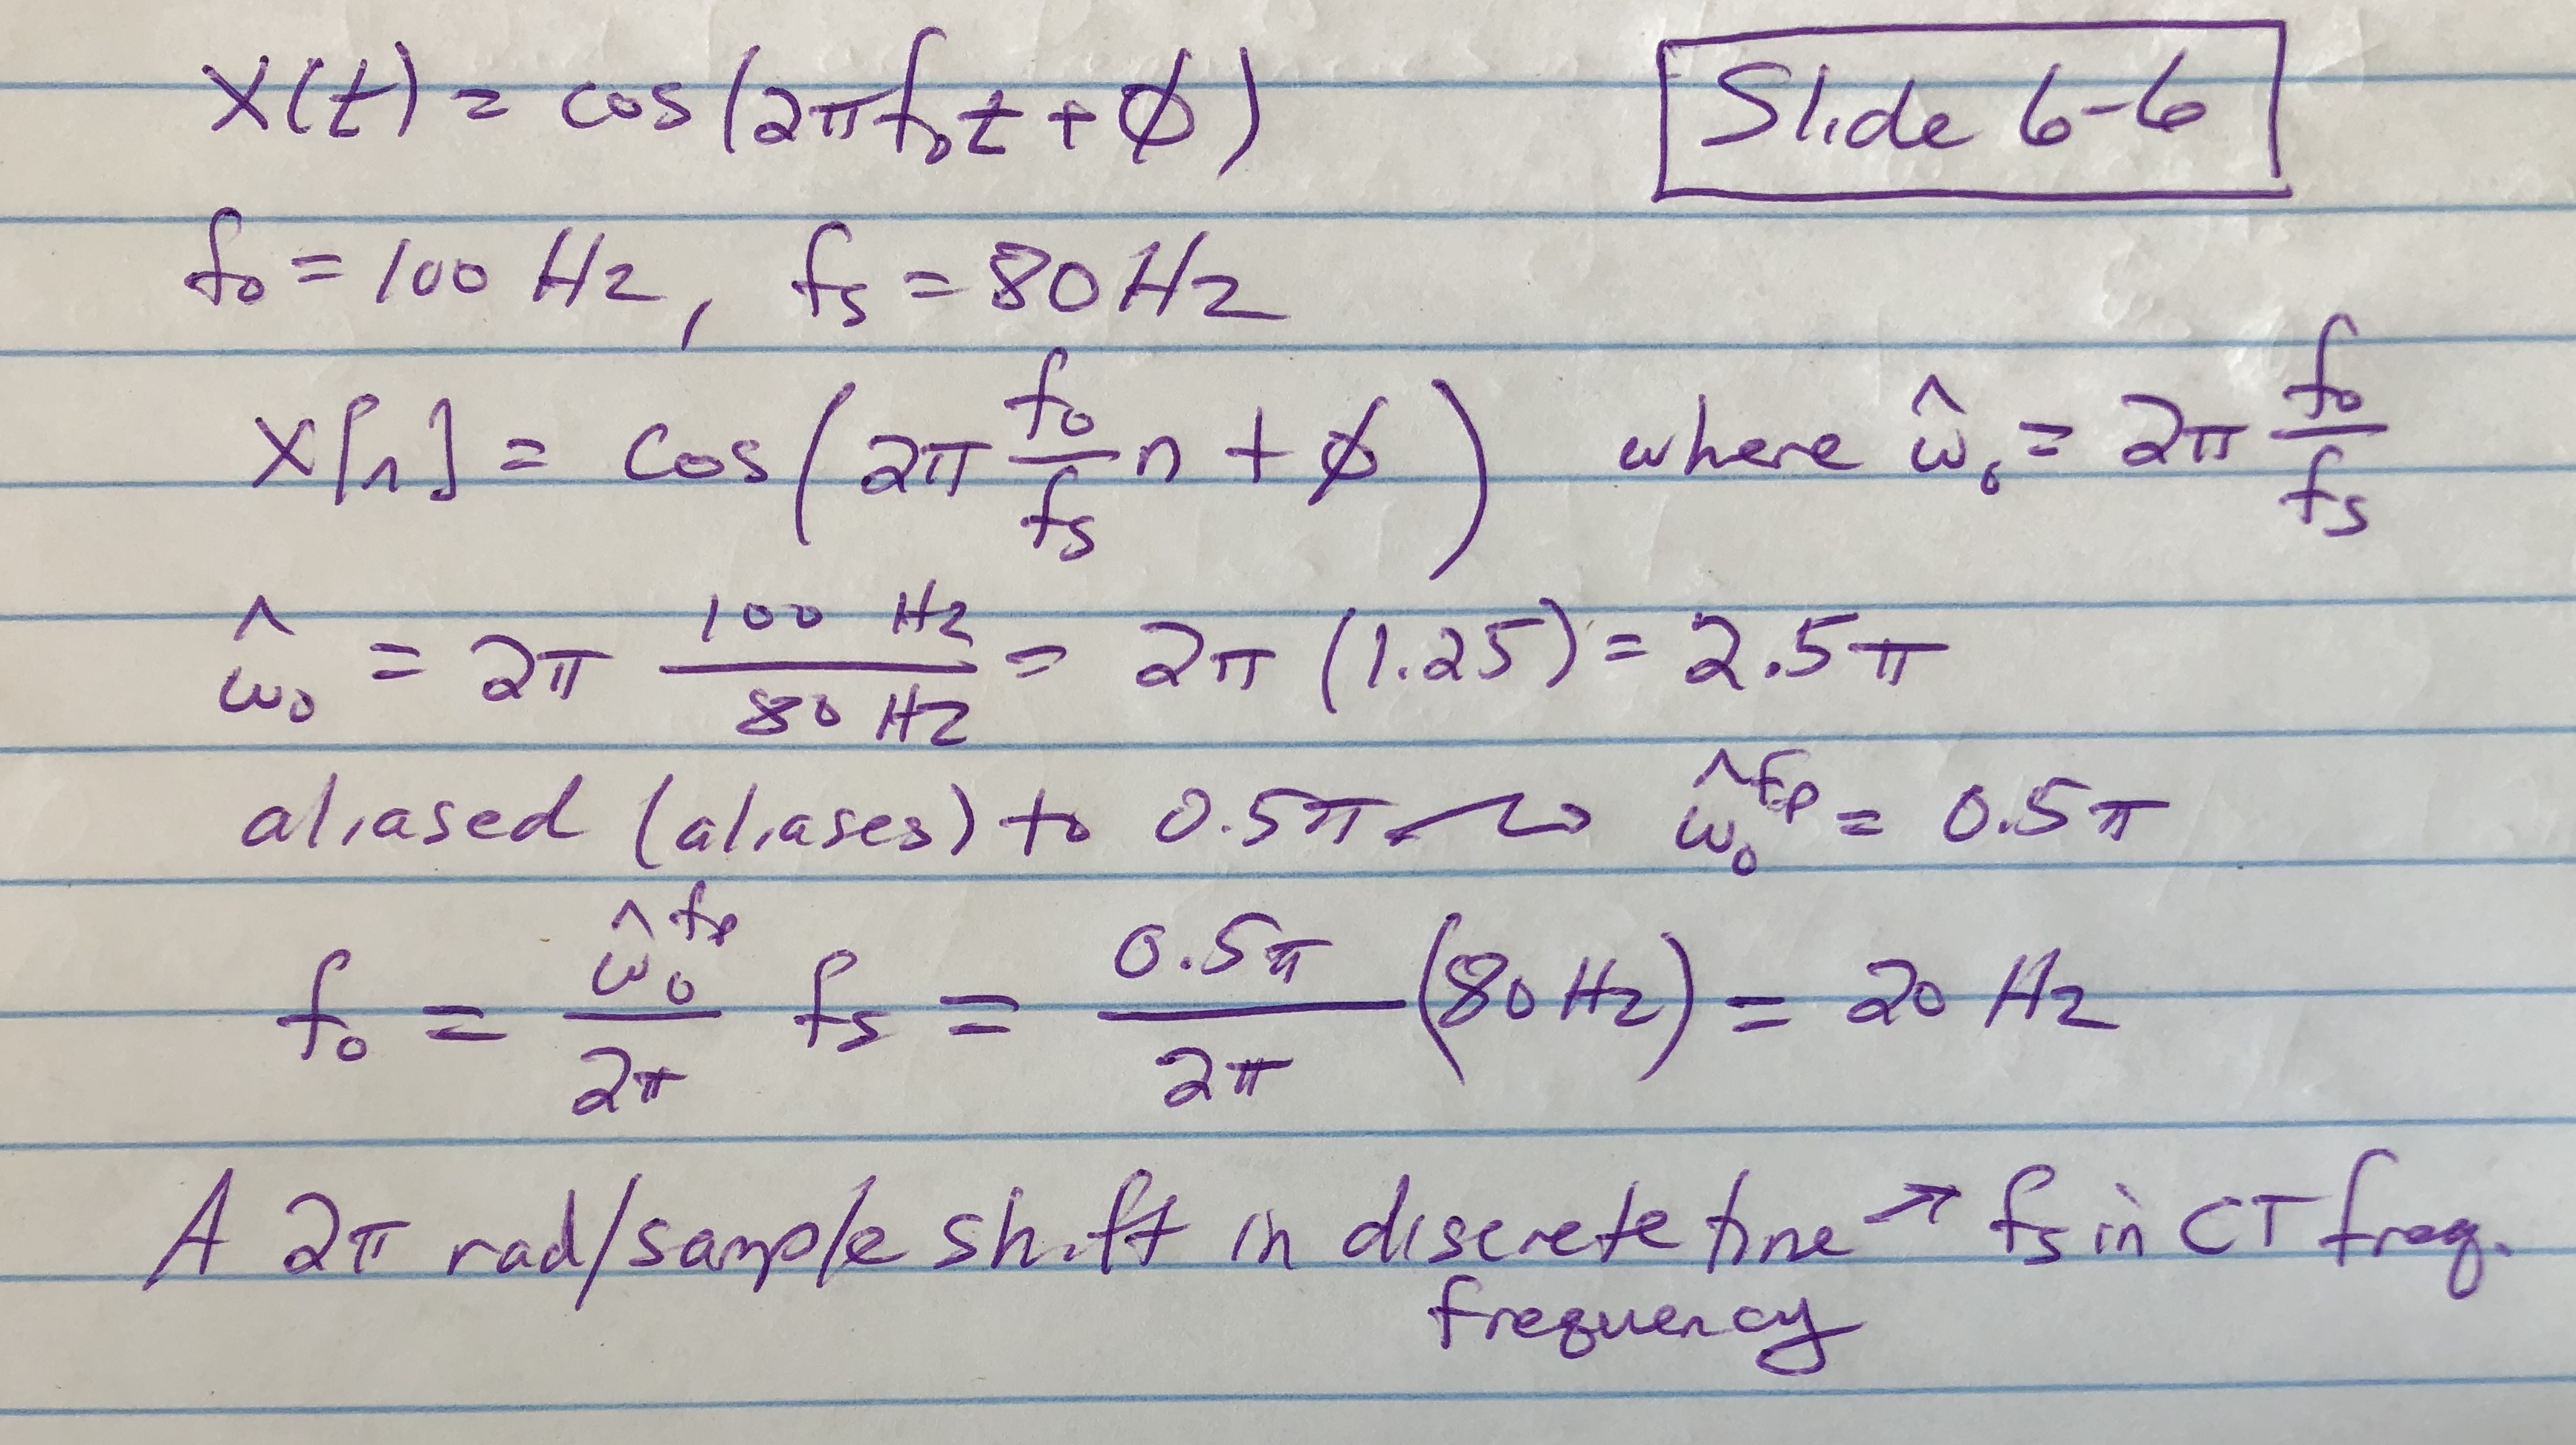 x(t) = cos(2πf₀t + ϕ)
Slide 6-6
f₀ = 100 Hz, fₛ = 80 Hz
x[n] = cos(2π f₀/fₛ n + ϕ) where ω̂₀ = 2π f₀/fₛ
ω̂₀ = 2π 100 Hz/80 Hz = 2π (1.25) = 2.5π
aliased (aliases) to 0.5π ↝ ω̂₀^fp = 0.5π
f₀ = ω̂₀^fp/2π fₛ = 0.5π/2π (80 Hz) = 20 Hz
A 2π rad/sample shift in discrete time → fₛ in CT freq.
frequency